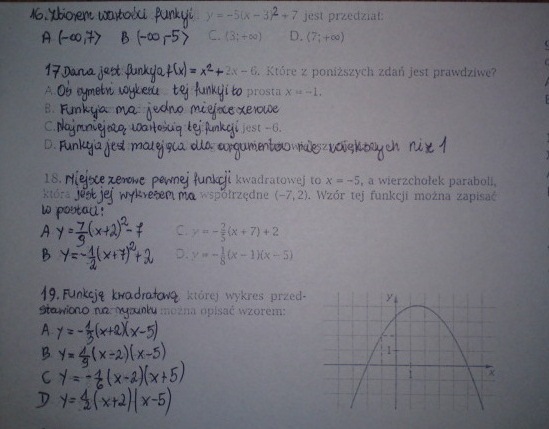 16. Zbiorem wartości funkcji y = −5(x − 3)² + 7 jest przedział:
A (−∞,7⟩ B (−∞,−5⟩ C. ⟨3;+∞) D. ⟨7;+∞)
17 Dana jest funkcja f(x) = x² + 2x − 6. Które z poniższych zdań jest prawdziwe?
A. Oś symetrii wykresu tej funkcji to prosta x = −1.
B. Funkcja ma jedno miejsce zerowe
C. Najmniejszą wartością tej funkcji jest −6.
D. Funkcja jest malejąca dla argumentów nie większych niż 1
18. Miejsce zerowe pewnej funkcji kwadratowej to x = −5, a wierzchołek paraboli,
która jest jej wykresem ma współrzędne (−7, 2). Wzór tej funkcji można zapisać
w postaci:
A y = 7/9(x+2)² − 7 C. y = −2/5(x + 7) + 2
B y = −1/2(x+7)² + 2 D. y = −1/8(x − 1)(x − 5)
19. Funkcję kwadratową której wykres przed-
stawiono na rysunku można opisać wzorem:
A y = −1/3(x+2)(x−5)
B. y = 4/9(x−2)(x−5)
C y = −1/6(x−2)(x+5)
D y = 1/2(x+2)(x−5)
y
1
x
1